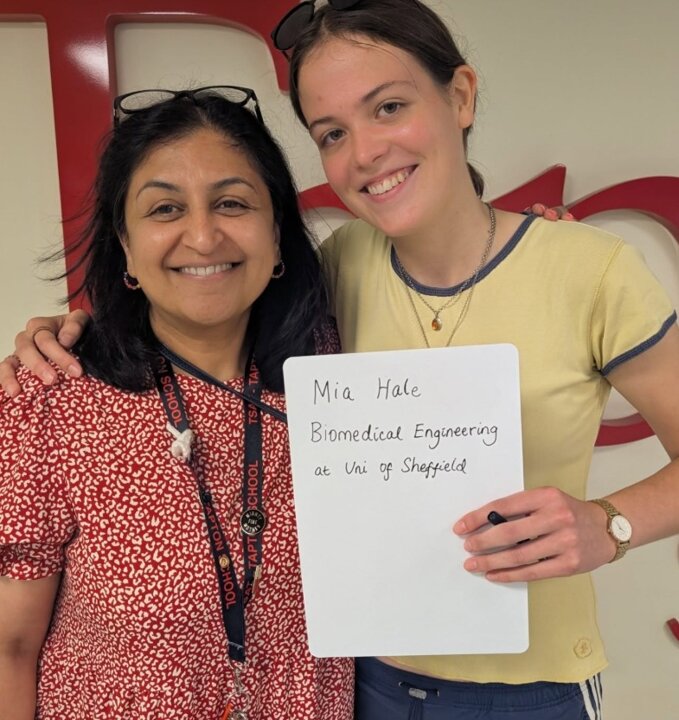 Mia Hale
Biomedical Engineering
at Uni of Sheffield
TAPTON SCHOOL
TAPT
SCHOOL